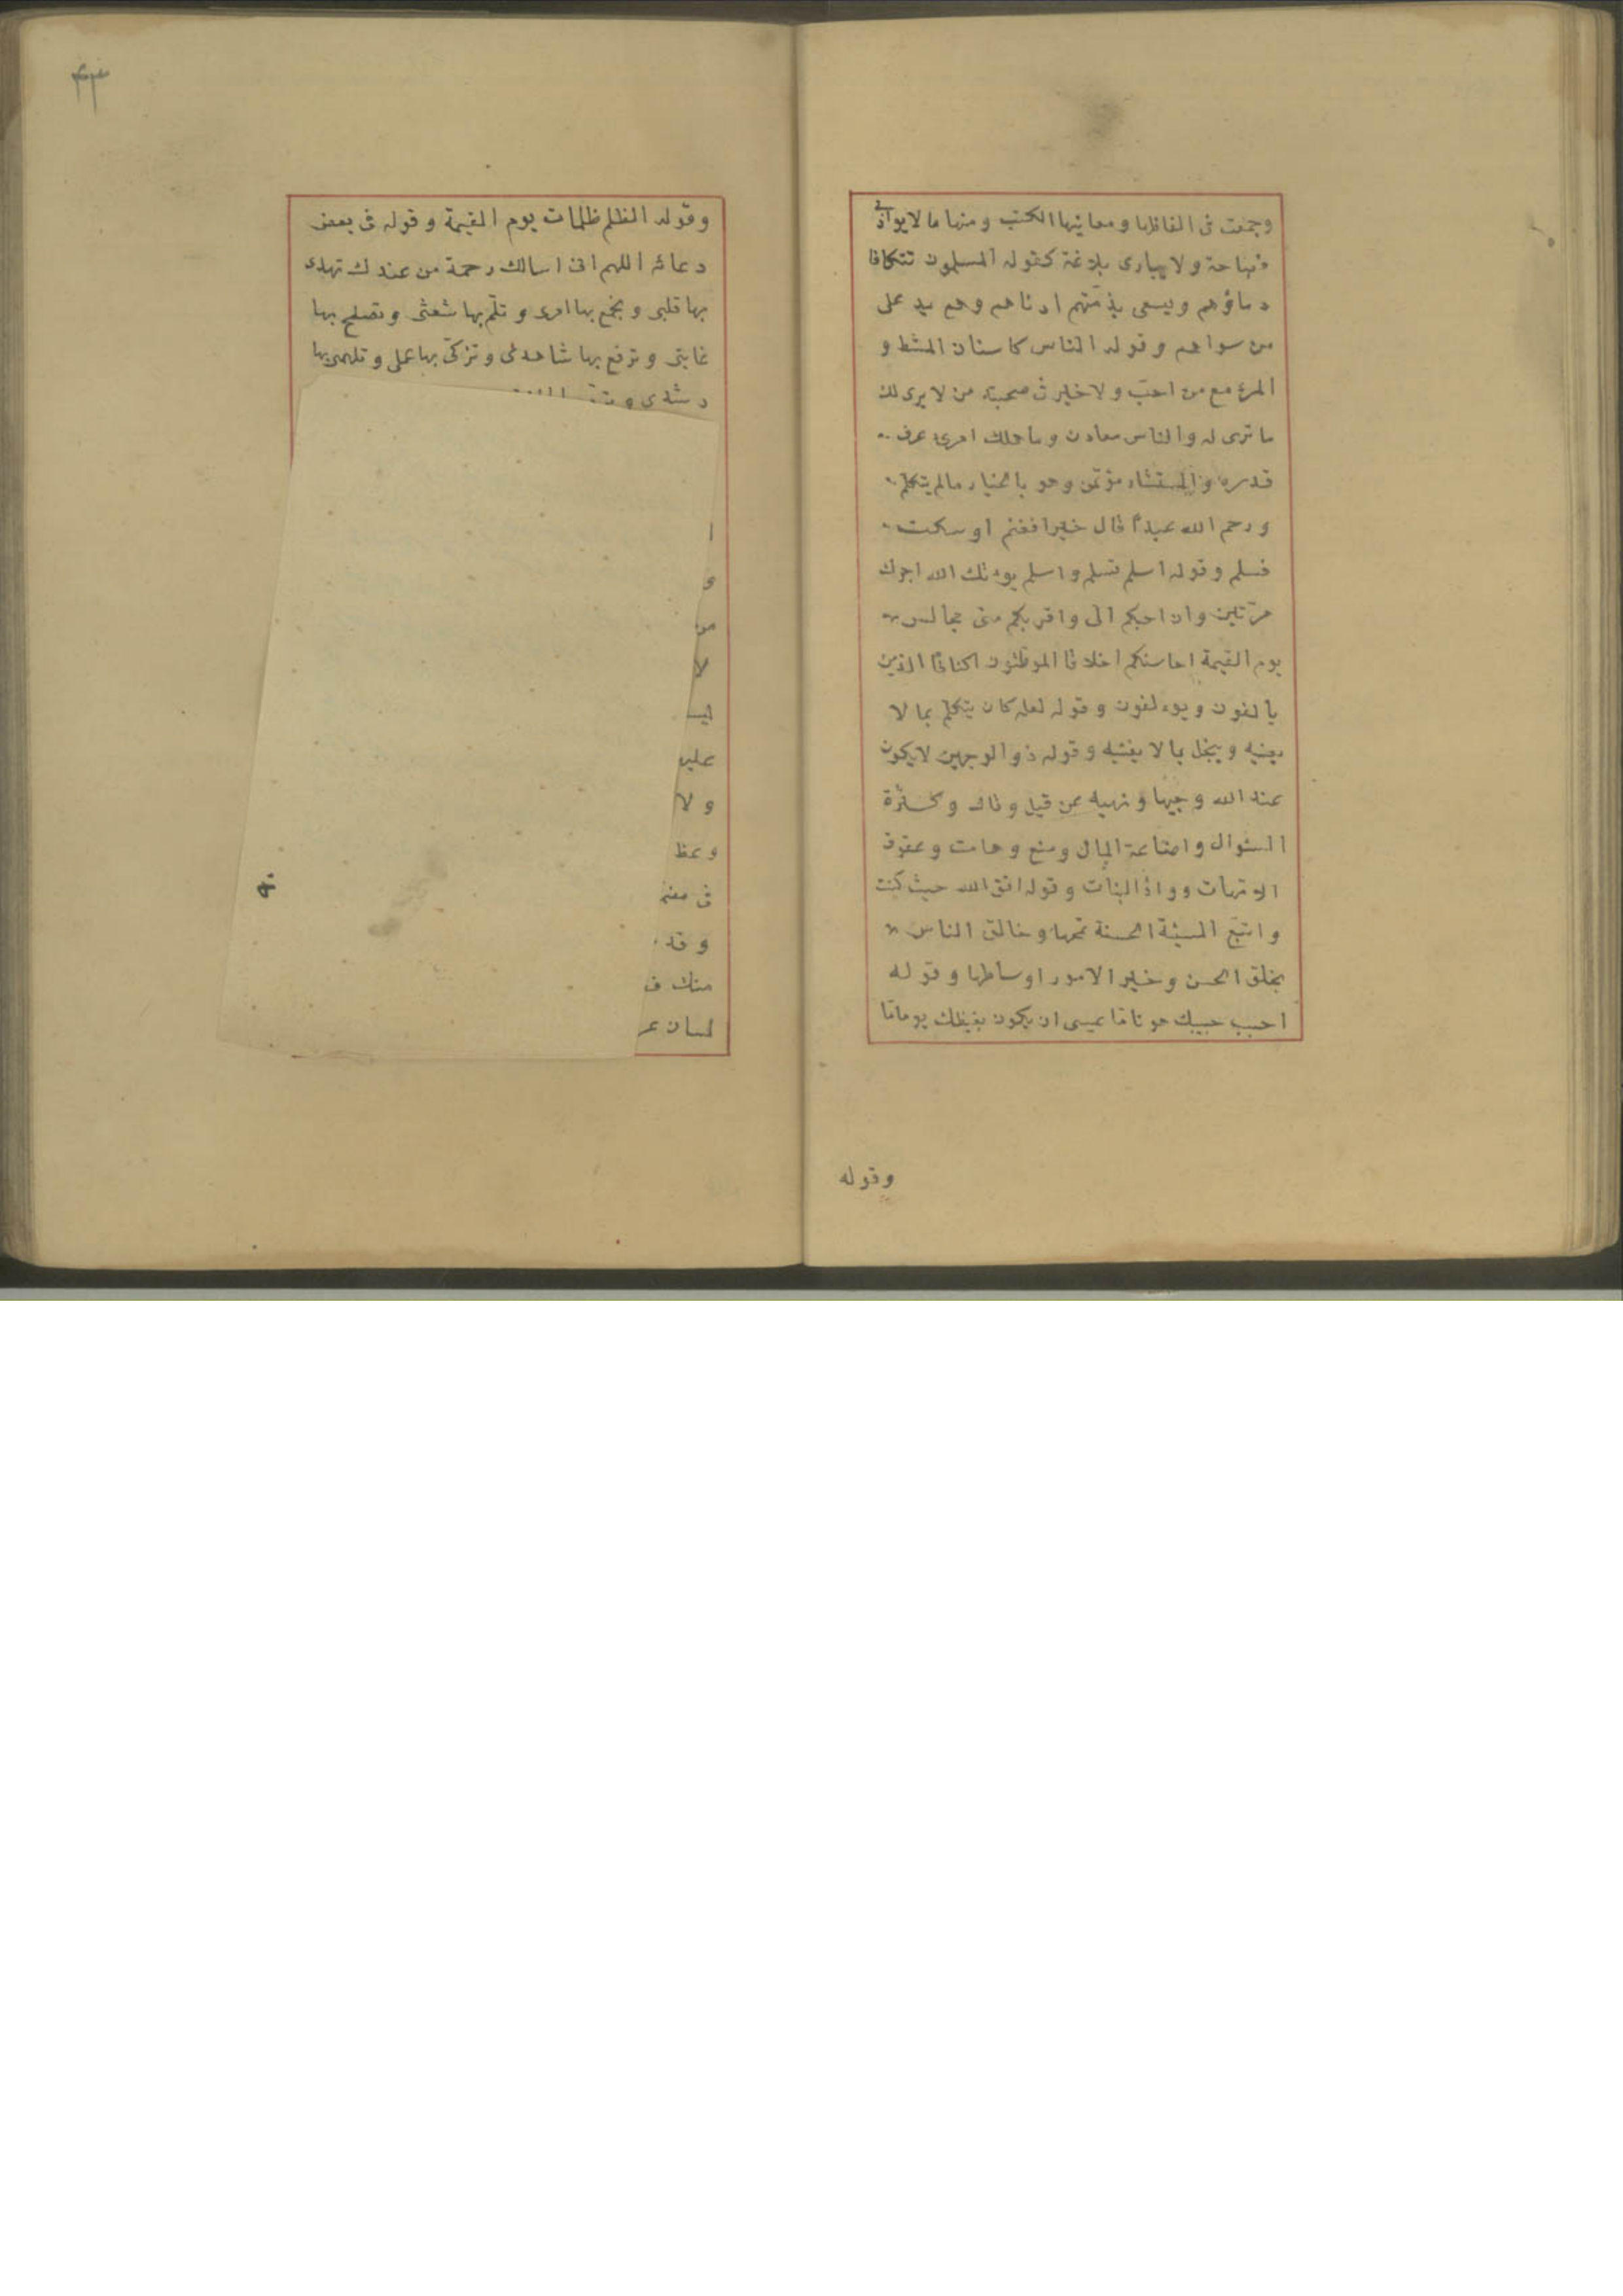 وجمعت فى الفاظها ومعانيها الكتب ومنها ما لا يوازى
فصاحة ولا يبارى بلاغة كقوله المسلمون تتكافا
دماؤهم ويسعى بذمّتهم ادناهم وهم يد على
من سواهم وقوله الناس كاسنان المشط و
المرء مع من احبّ ولا خير فى صحبة من لا يرى لك
ما ترى له والناس معادن وما هلك امرء عرف
قدره والمستشار مؤتمن وهو بالخيار مالم يتكلم
ورحم الله عبدًا قال خيرا فغنم او سكت
فسلم وقوله اسلم تسلم واسلم يوءتك الله اجرك
مرّتين وان احبكم الىّ واقربكم منى مجالس
يوم القيمة احاسنكم اخلاقا الموطئون اكنافًا الذين
يالفون ويوءلفون وقوله لعله كان يتكلم بما لا
يعنيه ويبخل بما لا يغنيه وقوله ذو الوجهين لا يكون
عند الله وجيها ونهيه عن قيل وقال وكثرة
السئوال واضاعة المال ومنع وهات وعقوق
الامّهات وواد البنات وقوله اتق الله حيث كنت
واتبع السيئة الحسنة تمحها وخالق الناس
بخلق الحسن وخير الامور اوساطها وقوله
احبب حبيبك هونا مّا عسى ان يكون بغيضك يوما مّا
وقوله
٤٣
وقوله الظلم ظلمات يوم القيمة وقوله فى بعض
دعائه اللهم انى اسالك رحمة من عندك تهدى
بها قلبى وتجمع بها امرى وتلمّ بها شعثى وتصلح بها
غايبتى وترفع بها شاهدى وتزكّى بها عملى وتلهمنى بها
رشدى
ا
و
من
لا
ليس
عليه
ولا
وعظ
فى معنـ
وقد
منك فى
لسان عر